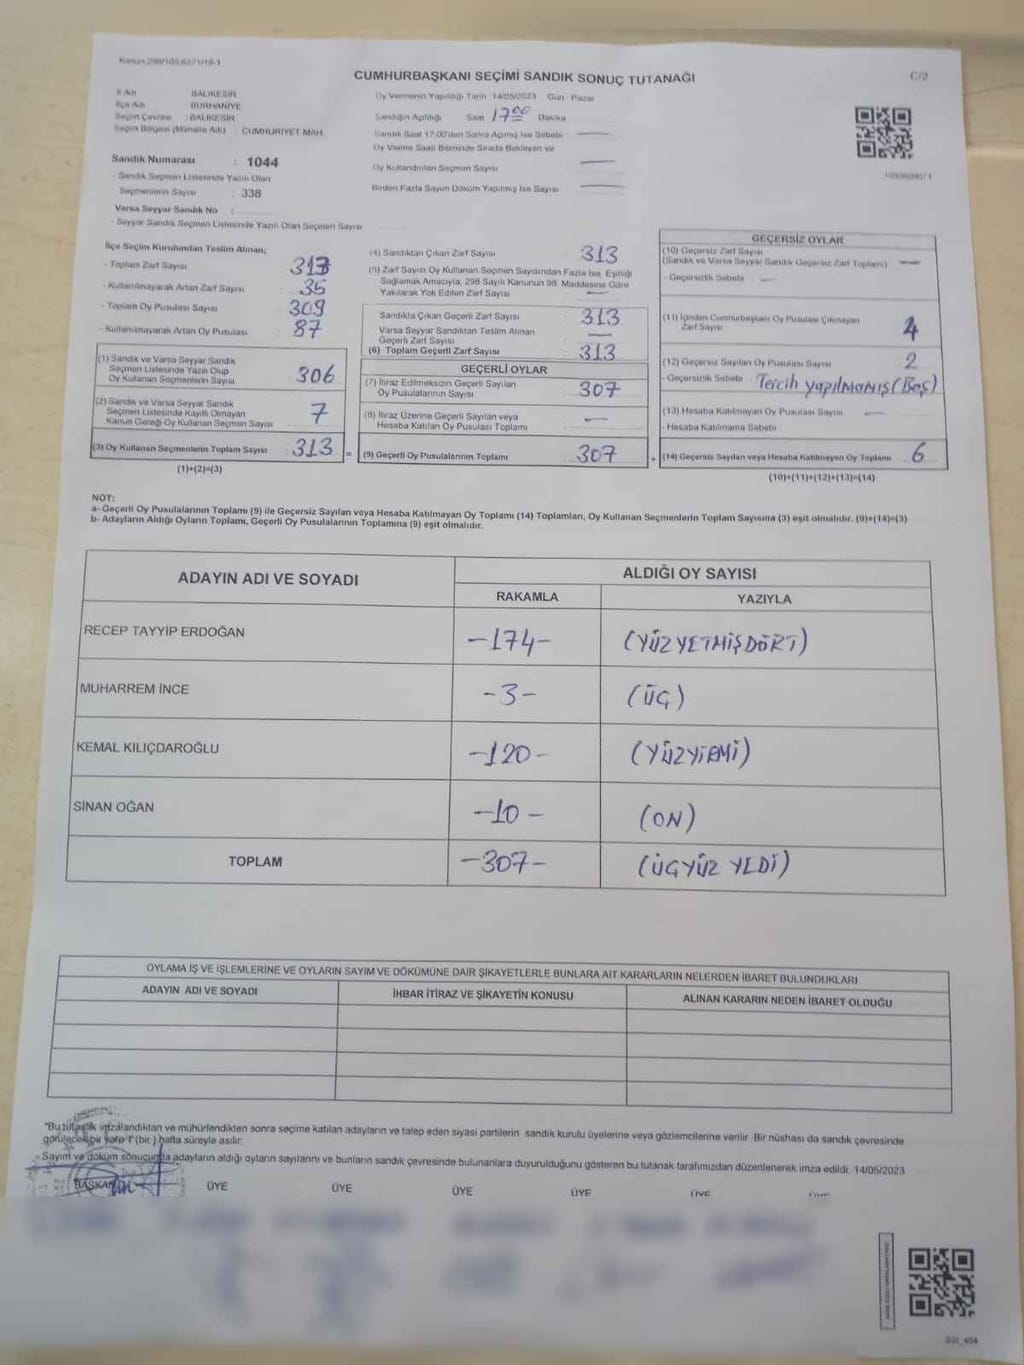 CUMHURBAŞKANI SEÇİMİ SANDIK SONUÇ TUTANAĞI
C/2
İl Adı : BALIKESİR
İlçe Adı : BURHANİYE
Seçim Çevresi : BALIKESİR
Seçim Bölgesi (Mahalle Adı) : CUMHURİYET MAH.
Oy Vermenin Yapıldığı Tarih 14/05/2023 Gün : Pazar
Sandığın Açıldığı Saat 17:00 Dakika
Sandık Saat 17:00'den Sonra Açılmış İse Sebebi —
Oy Verme Saati Bitiminde Sırada Bekleyen ve
Oy Kullandırılan Seçmen Sayısı —
Birden Fazla Sayım Döküm Yapılmış İse Sayısı —
Sandık Numarası : 1044
- Sandık Seçmen Listesinde Yazılı Olan
Seçmenlerin Sayısı : 338
Varsa Seyyar Sandık No :
- Seyyar Sandık Seçmen Listesinde Yazılı Olan Seçmen Sayısı
İlçe Seçim Kurulundan Teslim Alınan;
- Toplam Zarf Sayısı 313
- Kullanılmayarak Artan Zarf Sayısı : 35
- Toplam Oy Pusulası Sayısı : 309
- Kullanılmayarak Artan Oy Pusulası : 87
(1) Sandık ve Varsa Seyyar Sandık
Seçmen Listesinde Yazılı Olup
Oy Kullanan Seçmenlerin Sayısı : 306
(2) Sandık ve Varsa Seyyar Sandık
Seçmen Listesinde Kayıtlı Olmayan
Kanun Gereği Oy Kullanan Seçmen Sayısı : 7
(3) Oy Kullanan Seçmenlerin Toplam Sayısı : 313 =
(1)+(2)=(3)
(4) Sandıktan Çıkan Zarf Sayısı : 313
(5) Zarf Sayısı Oy Kullanan Seçmen Sayısından Fazla İse, Eşitliği
Sağlamak Amacıyla, 298 Sayılı Kanunun 98. Maddesine Göre
Yakılarak Yok Edilen Zarf Sayısı : —
Sandıkta Çıkan Geçerli Zarf Sayısı : 313
Varsa Seyyar Sandıktan Teslim Alınan
Geçerli Zarf Sayısı : —
(6) Toplam Geçerli Zarf Sayısı : 313
GEÇERLİ OYLAR
(7) İtiraz Edilmeksizin Geçerli Sayılan
Oy Pusulalarının Sayısı : 307
(8) İtiraz Üzerine Geçerli Sayılan veya
Hesaba Katılan Oy Pusulası Toplamı : —
(9) Geçerli Oy Pusulalarının Toplamı : 307 +
GEÇERSİZ OYLAR
(10) Geçersiz Zarf Sayısı
(Sandık ve Varsa Seyyar Sandık Geçersiz Zarf Toplamı) : —
- Geçersizlik Sebebi : —
(11) İçinden Cumhurbaşkanı Oy Pusulası Çıkmayan
Zarf Sayısı : 4
(12) Geçersiz Sayılan Oy Pusulası Sayısı : 2
- Geçersizlik Sebebi : Tercih yapılmamış (Boş)
(13) Hesaba Katılmayan Oy Pusulası Sayısı : —
- Hesaba Katılmama Sebebi :
(14) Geçersiz Sayılan veya Hesaba Katılmayan Oy Toplamı : 6
(10)+(11)+(12)+(13)=(14)
NOT:
a- Geçerli Oy Pusulalarının Toplamı (9) ile Geçersiz Sayılan veya Hesaba Katılmayan Oy Toplamı (14) Toplamları, Oy Kullanan Seçmenlerin Toplam Sayısına (3) eşit olmalıdır. (9)+(14)=(3)
b- Adayların Aldığı Oyların Toplamı, Geçerli Oy Pusulalarının Toplamına (9) eşit olmalıdır.
ADAYIN ADI VE SOYADI
ALDIĞI OY SAYISI
RAKAMLA YAZIYLA
RECEP TAYYİP ERDOĞAN -174- (YÜZYETMİŞDÖRT)
MUHARREM İNCE -3- (ÜÇ)
KEMAL KILIÇDAROĞLU -120- (YÜZYİRMİ)
SİNAN OĞAN -10- (ON)
TOPLAM -307- (ÜÇYÜZ YEDİ)
OYLAMA İŞ VE İŞLEMLERİNE VE OYLARIN SAYIM VE DÖKÜMÜNE DAİR ŞİKAYETLERLE BUNLARA AİT KARARLARIN NELERDEN İBARET BULUNDUKLARI
ADAYIN ADI VE SOYADI İHBAR İTİRAZ VE ŞİKAYETİN KONUSU ALINAN KARARIN NEDEN İBARET OLDUĞU
*Bu tutanak imzalandıktan ve mühürlendikten sonra seçime katılan adayların ve talep eden siyasi partilerin sandık kurulu üyelerine veya gözlemcilerine verilir. Bir nüshası da sandık çevresinde
görülecek bir yere 1 (bir) hafta süreyle asılır.
- Sayım ve döküm sonucunda adayların aldığı oyların sayılarını ve bunların sandık çevresinde bulunanlara duyurulduğunu gösteren bu tutanak tarafımızdan düzenlenerek imza edildi. 14/05/2023
BAŞKAN ÜYE ÜYE ÜYE ÜYE ÜYE ÜYE